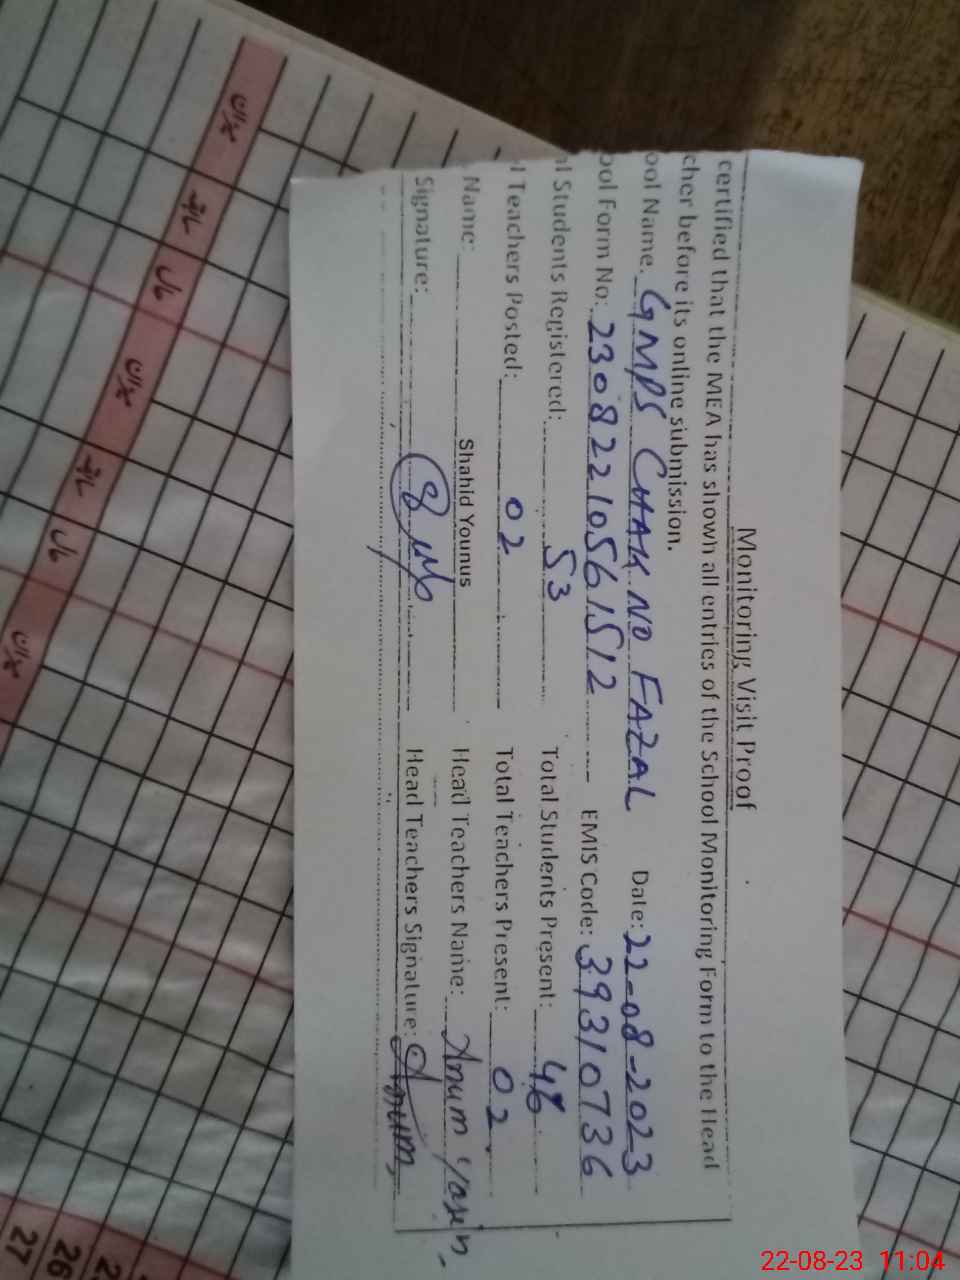 Monitoring Visit Proof
certified that the MEA has shown all entries of the School Monitoring Form to the Head
cher before its online submission.
ool Name: GMPS CHAK NO FAZAL Date: 22-08-2023
ool Form No: 23082210561512 EMIS Code: 39310736
al Students Registered: 53 Total Students Present: 46
l Teachers Posted: 02 Total Teachers Present: 02
Name: Shahid Younus Head Teachers Name: Anum Yasin
Signature: Head Teachers Signature: Anum
26
27
22-08-23 11:04